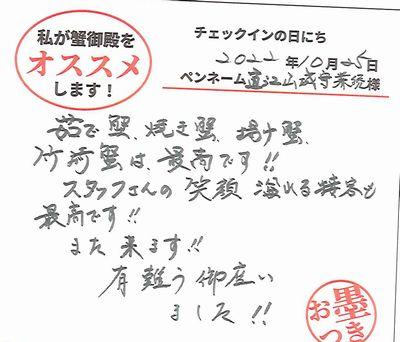 私が蟹御殿を
オススメ
します!
チェックインの日にち
2022年10月25日
ペンネーム 直江山城守兼続様
茹で蟹、焼き蟹、揚げ蟹、
竹崎蟹は、最高です!!
スタッフさんの笑顔溢れる接客も
最高です!!
また来ます!!
有難う御座い
ました!!
お墨
つき